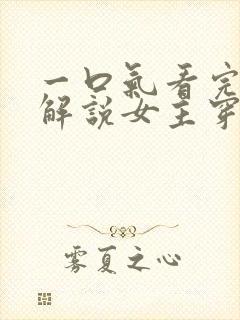 一口氣看完
解說女主穿
雾夏之心